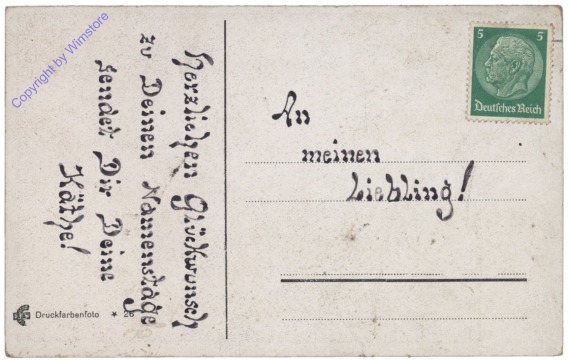 Copyright by Wimstore
Herzlichen Glückwunsch
zu Deinen Namenstage
sendet Dir Deine
Käthe!
An
meinen
Liebling!
5 5
Deutsches Reich
Druckfarbenfoto * 26